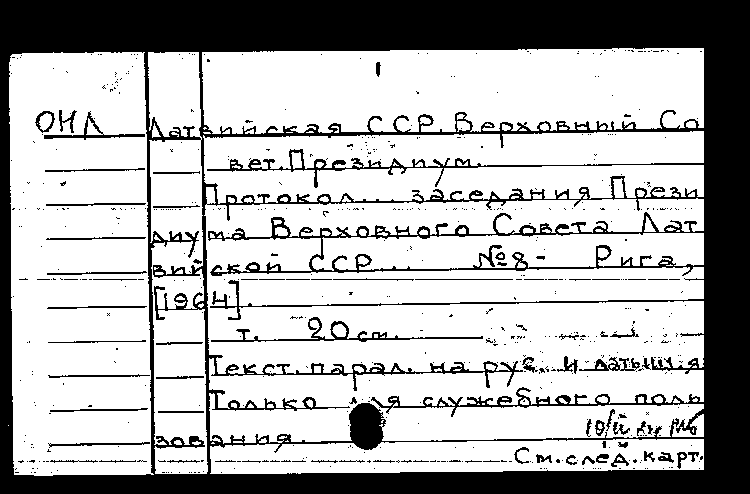 ОНЛ Латвийская ССР. Верховный Со
вет. Президиум.
Протокол... заседания Прези
диума Верховного Совета Лат
вийской ССР... №8- Рига,
[1964].
т. 20 см.
Текст. парал. на рус. и латыш. я
Только для служебного поль
зования.
См. след. карт.